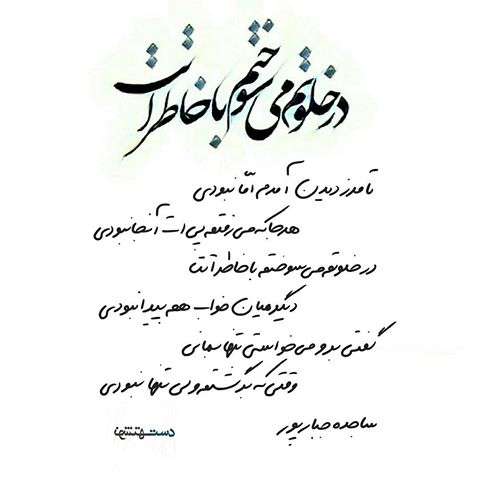 در خلوتم می سوختم با خاطراتت
تا مرز دیدن آمدم امّا نبودی
هر جا که می رفتم پی ات آنجا نبودی
در خلوتم می سوختم با خاطراتت
دیگر میان خواب هم پیدا نبودی
گفتی برو می خواستی تنها بمانی
وقتی که برگشتم ولی تنها نبودی
ساجده جبارپور